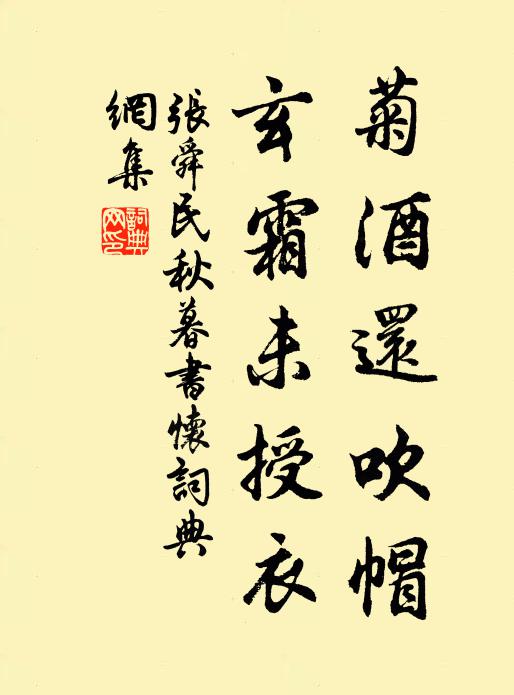 菊酒還吹帽
玄霜未授衣
張舜民秋暮書懷詞典
網集
詞典
网印